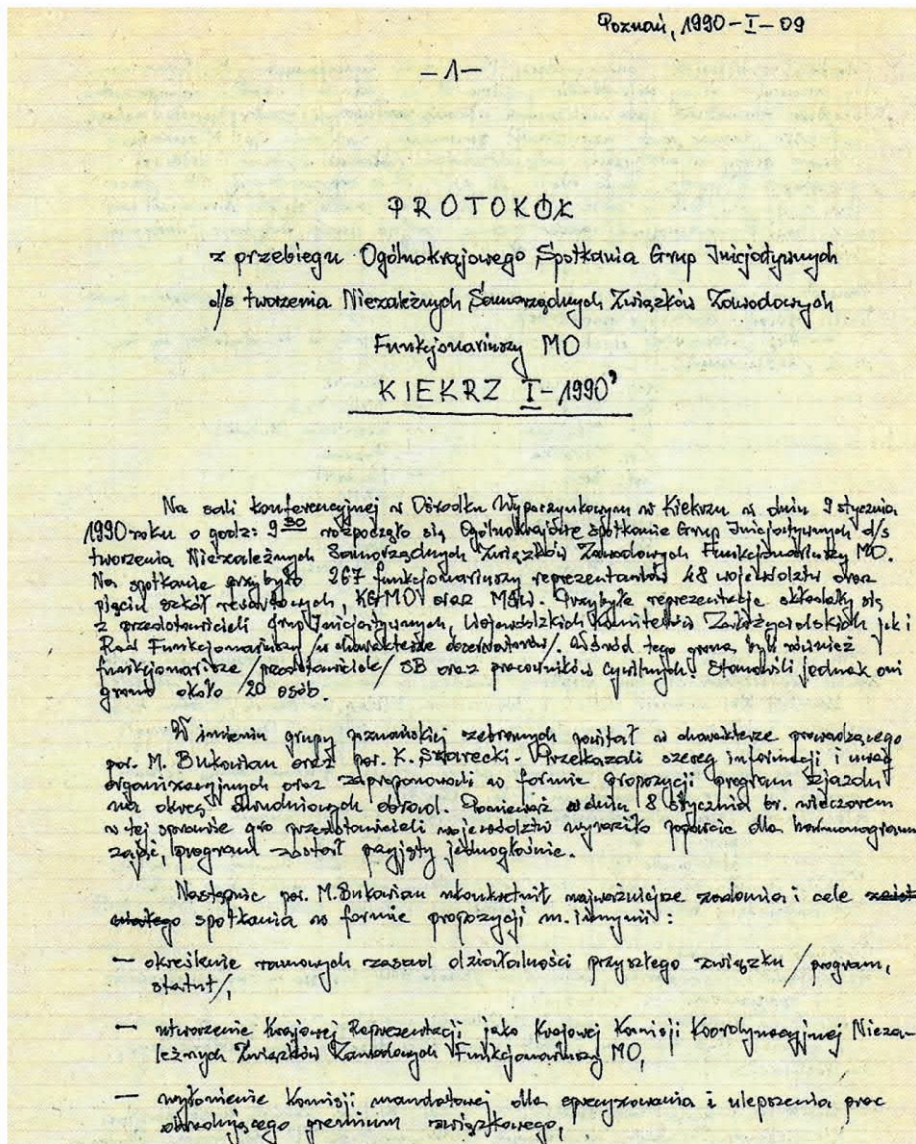 Poznań, 1990-I-09
-1-
PROTOKÓŁ
z przebiegu Ogólnokrajowego Spotkania Grup Inicjatywnych
d/s tworzenia Niezależnych Samorządnych Związków Zawodowych
Funkcjonariuszy MO
KIEKRZ I-1990'
Na sali konferencyjnej w Ośrodku Wypoczynkowym w Kiekrzu w dniu 9 stycznia
1990 roku o godz: 9 30 rozpoczęło się Ogólnokrajowe spotkanie Grup Inicjatywnych d/s
tworzenia Niezależnych Samorządnych Związków Zawodowych Funkcjonariuszy MO.
Na spotkanie przybyło 267 funkcjonariuszy reprezentantów 48 województw oraz
pięciu szkół resortowych, KGMO oraz MSW. Przybyłe reprezentacje składały się
z przedstawicieli Grup Inicjatywnych, Wojewódzkich Komitetów Założycielskich jak i
Rad Funkcjonariuszy /w charakterze obserwatorów/. Wśród tego grona byli również
funkcjonariusze /przedstawiciele/ SB oraz pracowników cywilnych. Stanowili jednak oni
grono około 20 osób.
W imieniu grupy poznańskiej zebranych powitał w charakterze prowadzącego
por. M. Bukowian oraz por. K. Sztarecki. Przekazali szereg informacji i uwag
organizacyjnych oraz zaproponowali w formie propozycji program zjazdu
na okres dwudniowych obrad. Ponieważ w dniu 8 stycznia br. wieczorem
w tej sprawie gro przedstawicieli województw wyraziło poparcie dla harmonogramu
zajęć, program został przyjęty jednogłośnie.
Następnie por. M. Bukowian ukonkretnił najważniejsze zadania i cele
spotkania w formie propozycji m. innymi:
- określenie ramowych zasad działalności przyszłego związku /program,
statut/,
- utworzenie Krajowej Reprezentacji jako Krajowej Komisji Koordynacyjnej Nieza-
leżnych Związków Zawodowych Funkcjonariuszy MO,
- wyłonienie Komisji mandatowej dla sprecyzowania i ulepszenia prac
obradującego gremium związkowego,